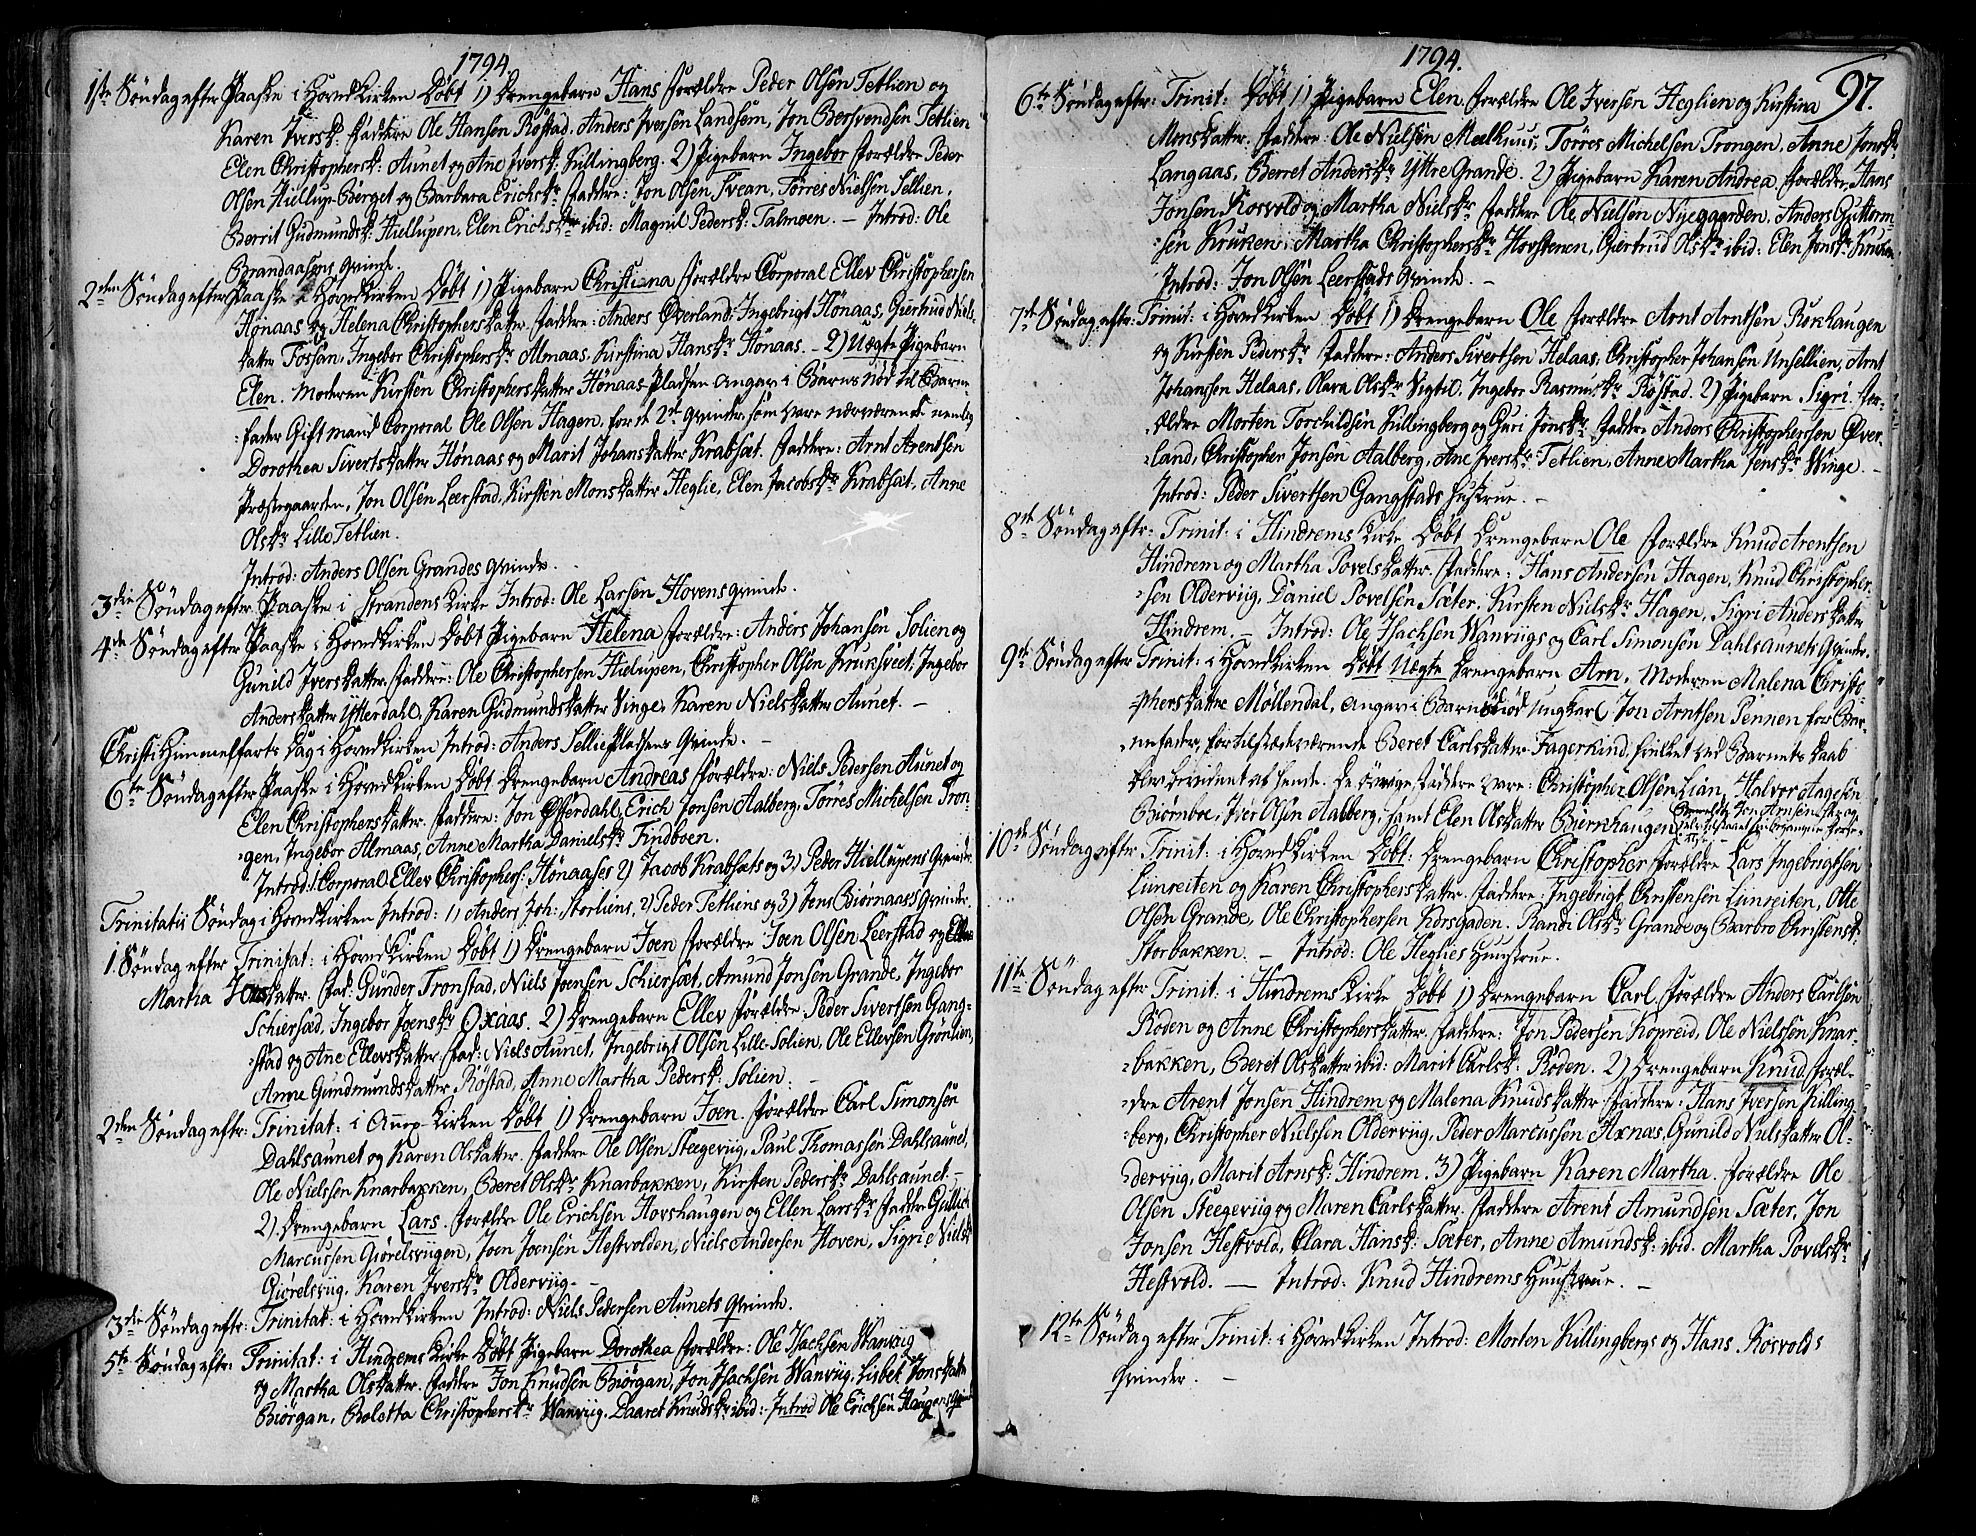 1794.
1ste Søndag efter Paaske i HovedKirken Döbt 1) Drengebarn Hans Forældre Peder Olsen Tetlien og
Karen Iversk: Faddere Ole Hansen Røstad, Anders Iversen Landsem, Jon Bersvendsen Tetlien
Elen Christophersk: Aunet og Ane Iversk: Killingberg. 2) Pigebarn Ingebor Forældre Peder
Olsen Hiellup-Børget og Barbara Ericksdr Faddere: Jon Olsen Tvean, Tørres Nielsen Sellien,
Berrit Gudmundsk: Hiellupen, Elen Ericksdr ibid: Magnil Pedersk: Talmoen. – Introd: Ole
Brandaasens Qvinde.
2den Søndag efter Paaske i HovedKirken Döbt 1) Pigebarn Christiana Forældre Corporal Ellev Christophersen
Hønaas og Helena Christophersdatter. Faddere: Anders Overland, Ingebrigt Hönaas, Giertrud Niels-
datter Fossan, Ingebor Christophersdr Almaas, Kirstina Hansdr Hönaas. – 2) Uægte Pigebarn
Elen. Moderen Kirsten Christophersdatter Hønaas-Pladsen angav i Barns nød til Barne
fader Gift mand Corporal Ole Olsen Hagen, for de 2de Qvinder, som vare nærværende nemlig
Dorothea Sivertsdatter Hønaas og Marit Johansdatter Krabsæt. Faddere: Arnt Arentsen
Præstegaarden, Jon Olsen Leerstad, Kirsten Monsdatter Heglie, Elen Jacobsdr Krabsæt, Anne
Olsdr Lille Tetlien.
Introd: Anders Olsen Grandes Qvinde.
3die Søndag efter Paaske i Strandens Kirke Introd: Ole Larsen Hovens Qvinde.
4de Søndag efter Paaske i HovedKirken Döbt Pigebarn Helena Forældre: Anders Johansen Solien og
Gunild Iversdatter. Faddere: Ole Christophersen Hielupen, Christopher Olsen Kruksveet, Ingebor
Andersdatter Ytterdahl, Karen Gudmundsdatter Vinge, Karen Nielsdatter Aunet. –
Christi Himmelfarts Dag i HovedKirken Introd: Anders Selliepladsens Qvinde. –
6te Søndag efter Paaske i HovedKirken Döbt Drengebarn Andreas Forældre: Niels Pedersen Aunet og
Elen Christophersdatter. Faddere: Jon Ytterdahl, Erich Jonsen Aalberg, Törres Michelsen Tron-
gen, Ingebor Almaas, Anne Martha Danielsdr Findboen.
Introd: 1 Corporal Ellev Christophers: Hönaases 2) Jacob Krabsæts og 3) Peder Hiellupens Qvinder.
Trinitatis Söndag i HovedKirken Introd: 1) Anders Joh: Storliens, 2) Peder Tetliens og 3) Jens Biørnaas's Qvinder.
1. Søndag efter Trinitat: i HovedKirken Döbt 1) Drengebarn Joen Forældre Joen Olsen Leerstad og
Martha datter. Fad: Gunder Tronstad, Niels Joensen Schiersæt, Amund Jonsen Grande, Ingebor
Schiersæd, Ingebor Joensdr Oxaas. 2) Drengebarn Ellev Forældre Peder Sivertsen Gang-
stad og Ane Ellevsdatter. Fad: Niels Aunet, Ingebrigt Olsen Lille-Solien, Ole Ellevsen Grönlien,
Anne Gundmundsdatter Röstad, Anne Martha Pedersk: Solien. –
2den Søndag eftr: Trinitat: i Annex-Kirken Döbt 1) Drengebarn Joen. Forældre Carl Simonsen
Dahlsaunet og Karen Olsdatter. Faddere Ole Olsen Steegeviig, Paul Thomassen Dahlsaunet,
Ole Nielssen Knarbakken, Beret Olsdr Knarbakken, Kirsten Pedersdr Dahlsaunet –
2) Drengebarn Lars. Forældre Ole Erichsen Hovshaugen og Ellen Larsdr Faddere Gullich
Marcussen Giørelsvigen, Joen Joensen Hestvolden, Niels Andersen Hoven, Sigri Nielsdr
Giørelsviig, Karen Iversdr Olderviig. –
3die Søndag eftr: Trinitat: i HovedKirken Introd: Niels Pedersen Aunets Qvinde.
5te Søndag eftr: Trinitat: i Hindrems Kirke Döbt Pigebarn Dorothea Forældre: Ole Isachsen Wanviig
og Martha Olsdatter. Faddere Jon Knudsen Biørgan, Jon Isachsen Wanviig, Lisbet Jonsdatter
Biörgan, Boletta Christophersdr Wanviig. Daaret Knudsdr ibid: Introd Ole Erichsen Haugens Qvinde
1794.
97.
6te Søndag eftr: Trinit: Döbt 1) Pigebarn Elen Forældre Ole Iversen Heglien og Kirstina
Monsdatter. Faddere: Ole Nielsen Meelhuus, Törres Michelsen Trongen, Anne Jonsdr
Langaas, Berret Andersdr Yttre Grande. 2) Pigebarn Karen Andrea Forældre Hans
Jonsen Kosvold og Martha Nielsdr Faddere Ole Nielsen Nyegaarden, Anders Guttorm-
sen Kruken, Martha Christophersdr Hovstenen, Giertrud Olsdr ibid: Elen Jonsdr Kruken
Introd: Jon Olsen Leerstads Qvinde. –
7de Söndag eftr: Trinit: i HovedKirken Döbt 1) Drengebarn Ole Forældre Arnt Arntsen Rokhaugen
og Kirsten Pedersdr Faddere: Anders Sivertsen Helaas, Christopher Johansen Unsellien, Arnt
Johansen Helaas, Olava Olsdr Vigtil, Ingebor Rasmusdr Röstad. 2) Pigebarn Sigri. For-
ældre Morten Torchildsen Killingberg og Guri Jonsdr Faddere Anders Christophersen Över-
land, Christopher Jonsen Aalberg, Ane Iversdr Tetlien, Anne Martha Jensdr Winge. –
Introd: Peder Sivertsen Gangstads Hustrue. –
8de Søndag eftr: Trinit: i Hindrems Kirke Döbt Drengebarn Ole Forældre Knud Arentsen
Hindrem og Martha Povelsdatter. Faddere: Hans Andersen Hagen, Knud Christopher-
sen Olderviig, Daniel Povelsen Sæter, Kirsten Nielsdr Hagen, Sigri Andersdatter
Hindrem. – Introd: Ole Isachsen Wanviigs og Carl Simonsen Dahlsaunets Qvinder.
9de Søndag efter Trinit: i HovedKirken Döbt Uægte Drengebarn Arn. Moderen Malena Christo-
phersdatter Møllendal, angav i Barnsnød ungkarl Jon Arntsen Pennen for Bar-
nefader, for tilstædeværende Beret Carlsdatter Fagerkind, hvilket ved Barnets Daab
blev bevidnet at hende. De övrige Faddere vare: Christopher Olsen Lian, Halvor Aagesen
Biørnboe, Iver Olsen Aalberg, samt Elen Olsdatter Burkhaugen
10de Søndag efter Trinit: i HovedKirken Döbt: Drengebarn Christopher Forældre Lars Ingebrigtsen
Liinreiten og Karen Christophersdatter. Faddere: Ingebrigt Christensen Liinreiten, Otte
Olsen Grande, Ole Christophersen Korsgaden. Randi Olsdr Grande og Barbro Christensd:
Storbakken. – Introd: Ole Heglies Huustrue.
11te Søndag efter Trinit: i Hindrems Kirke Döbt 1) Drengebarn Carl. Forældre Anders Carlsen
Röden og Anne Christophersdatter. Faddere: Jon Pedersen Kopreid, Ole Nielsen Knar-
bakken, Berit Olsdatter ibid: Marit Carlsk: Röden. 2) Drengebarn Knud Foræl-
dre Arent Jonsen Hindrem og Malena Knudsdatter. Faddere: Hans Iversen Killing-
berg, Christopher Nielssen Olderviig, Peder Marcussen Axnæs, Gunild Nielsdatter Ol-
derviig, Marit Arnsk: Hindrem. 3) Pigebarn Karen Martha. Forældre Ole
Olsen Steegeviig og Maren Carlsdatter. Faddere Arent Amundsen Sæter, Jon
Jonsen Hestvold, Clara Hansk: Sæter, Anne Amundsk: ibid. Martha Povelsdr
Hestvold. – Introd: Knud Hindrems Huustrue. –
12te Søndag efter Trinit: i HovedKirken Introd: Morten Killingbergs og Hans Kosvolds
Qvinder. –